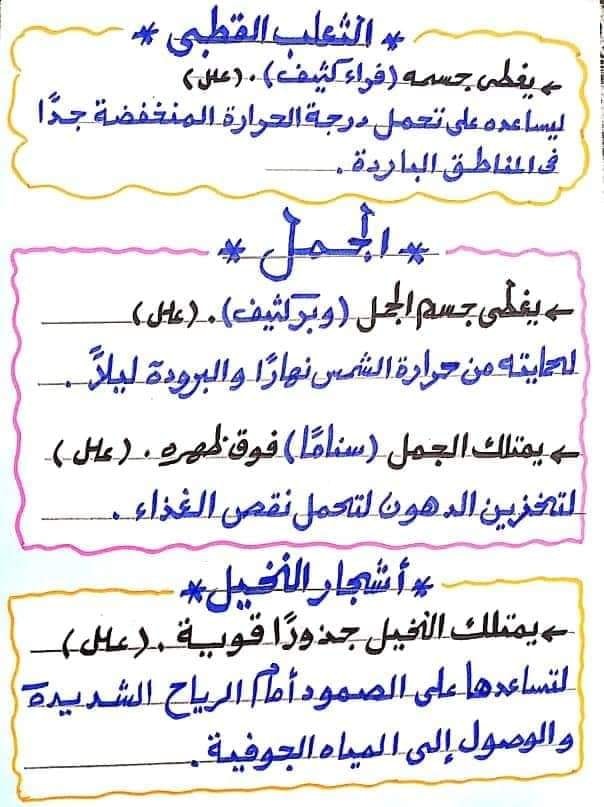 * الثعلب القطبى *
← يغطى جسمه (فراء كثيف). (علل)
ليساعده على تحمل درجة الحرارة المنخفضة جدًا
فى المناطق الباردة.
* الجمل *
← يغطى جسم الجمل (وبر كثيف). (علل)
لحمايته من حرارة الشمس نهارًا والبرودة ليلاً.
← يمتلك الجمل (سنامًا) فوق ظهره. (علل)
لتخزين الدهون لتحمل نقص الغذاء.
* أشجار النخيل *
← يمتلك النخيل جذورًا قوية. (علل)
لتساعدها على الصمود أمام الرياح الشديدة
والوصول إلى المياه الجوفية.